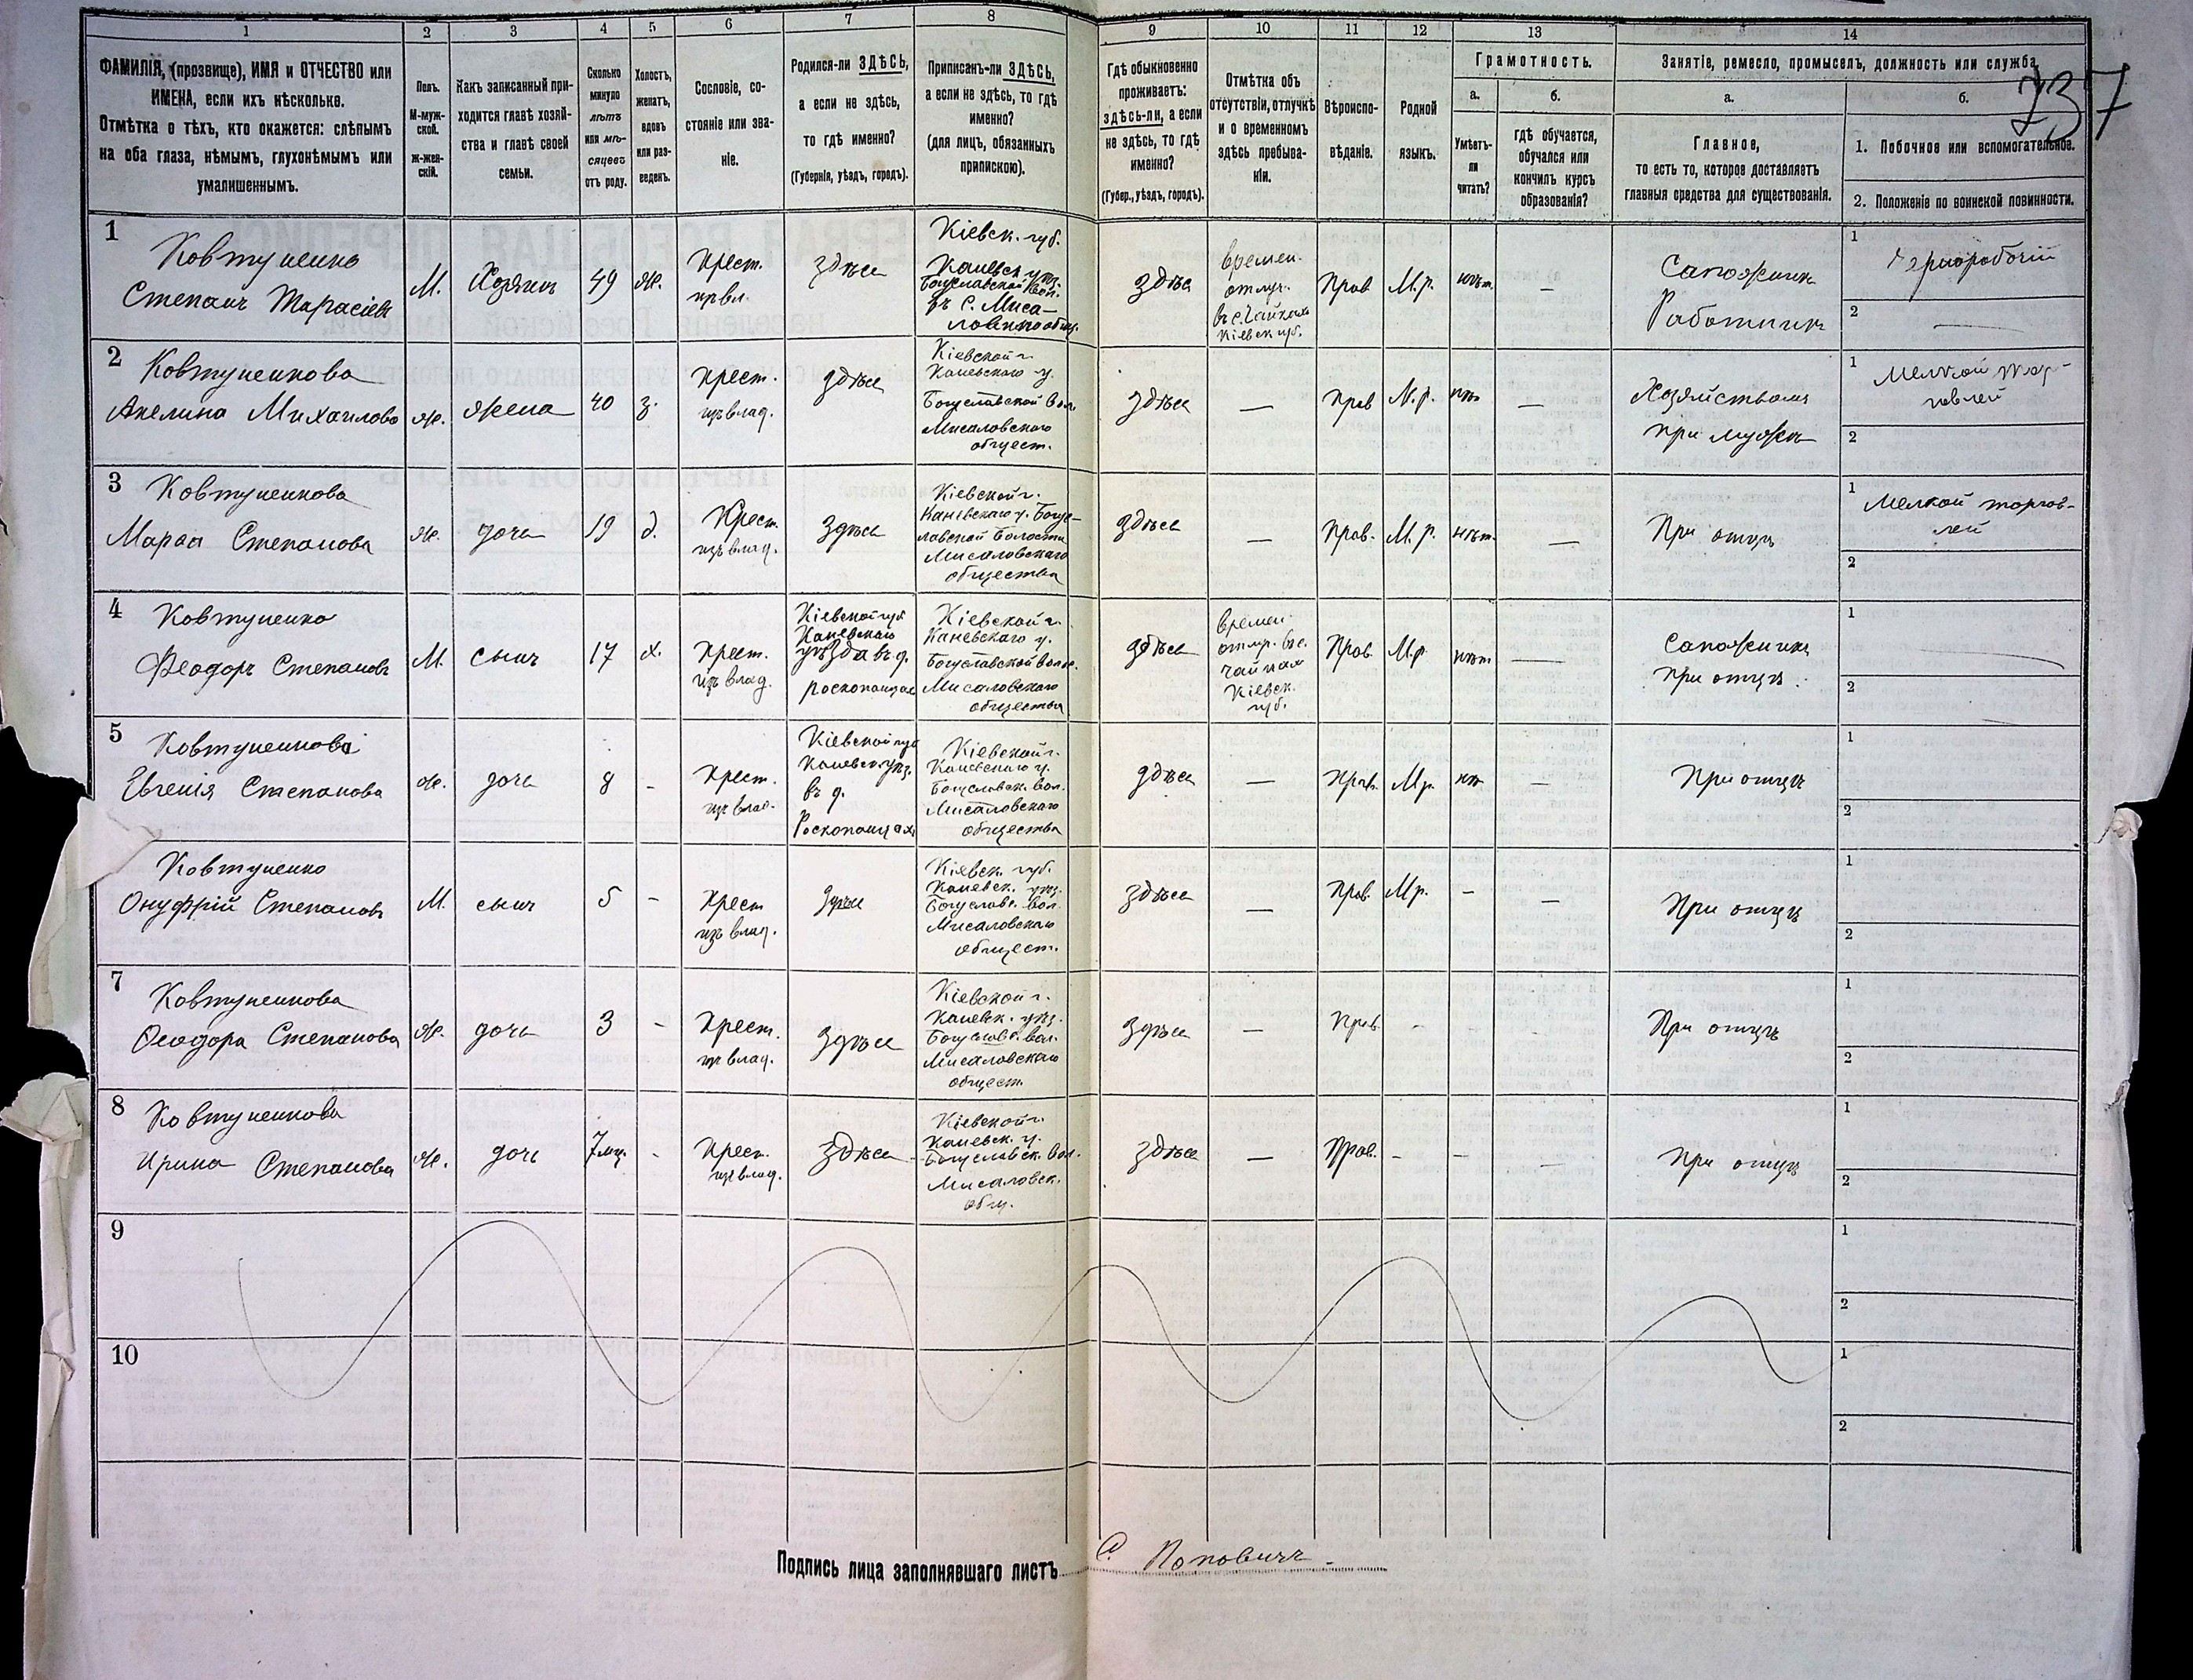 1 2 3 4 5 6 7 8 9 10 11 12 13 14
ФАМИЛІЯ, (прозвище), ИМЯ и ОТЧЕСТВО или
ИМЕНА, если ихъ нѣсколько.
Отмѣтка о тѣхъ, кто окажется: слѣпымъ
на оба глаза, нѣмымъ, глухонѣмымъ или
умалишеннымъ.
Полъ.
М-муж-
ской.
ж-жен-
скій.
Какъ записанный при-
ходится главѣ хозяй-
ства и главѣ своей
семьи.
Сколько
минуло
лѣтъ
или мѣ-
сяцевъ
отъ роду.
Холостъ,
женатъ,
вдовъ
или раз-
веденъ.
Сословіе, со-
стояніе или зва-
ніе.
Родился-ли ЗДѢСЬ,
а если не здѣсь,
то гдѣ именно?
(Губернія, уѣздъ, городъ).
Приписанъ-ли ЗДѢСЬ,
а если не здѣсь, то гдѣ
именно?
(для лицъ, обязанныхъ
припискою).
Гдѣ обыкновенно
проживаетъ:
здѣсь-ли, а если
не здѣсь, то гдѣ
именно?
(Губер., уѣздъ, городъ).
Отмѣтка объ
отсутствіи, отлучкѣ
и о временномъ
здѣсь пребыва-
ніи.
Вѣроиспо-
вѣданіе.
Родной
языкъ.
Грамотность.
а.
Умѣетъ-
ли
читать?
б.
гдѣ обучается,
обучался или
кончилъ курсъ
образованія?
Занятіе, ремесло, промыселъ, должность или служба.
а.
Главное,
то есть то, которое доставляетъ
главныя средства для существованія.
б.
737
1. Побочное или вспомогательное.
2. Положеніе по воинской повинности.
1
Ковтуненко
Степанъ Тарасіевъ
М.
Хозяинъ
49
ж.
Крест.
здѣсь
Кіевск. губ.
Каневск. уѣз.
Богуславской вол.
въ с. Миса-
здѣсь
времен.
отлуч.
Кіевск. губ.
Прав
М.р.
нѣт.
—
Сапожник
Работник
1 Чернорабочій
2 —
2
Ковтуненкова
Акелина Михаилова
ж.
жена
40
з.
Крест.
изъ влад.
здѣсь
Кіевской г.
Каневскаго у.
Богуславской вол.
Мисаловскаго
общест.
здѣсь
—
Прав
М.р.
нѣт
—
Хозяйствомъ
при мужѣ
1 Мелкой тор-
говлей
2
3
Ковтуненкова
Марѳа Степанова
ж.
дочь
19
д.
Крест.
изъ влад.
здѣсь
Кіевской г.
Каневскаго у. Богу-
славской волости
Мисаловскаго
общества
здѣсь
—
Прав.
М.р.
нѣт.
—
При отцѣ
1 Мелкой торгов-
лей
2
4
Ковтуненко
Ѳеодоръ Степановъ
М.
сынъ
17
х.
Крест.
изъ влад.
Кіевской губ
Каневскаго
уѣзда въ д.
Роскопанцах
Кіевской г.
Каневскаго у.
Богуславской волос.
Мисаловскаго
общества
здѣсь
времен.
отлуч. въ с.
Чайках
Кіевск.
губ.
Прав.
М.р
нѣт
—
Сапожник
При отцѣ.
1
2
5
Ковтуненкова
Евгенія Степанова
ж.
дочь
8
-
Крест.
изъ влад.
Кіевской губ
Каневск. уѣз.
въ д.
Роскопанцах
Кіевской г.
Каневскаго у.
Богуславск. вол.
Мисаловскаго
общества
здѣсь
—
Прав.
М.р.
нѣт
—
При отцѣ
1
2
Ковтуненко
Онуфрій Степановъ
М.
сынъ
5
-
Крест
изъ влад.
здѣсь
Кіевск. губ.
Каневск. уѣз.
Богуславс. вол.
Мисаловскаго
общест.
здѣсь
—
Прав.
М.р.
-
—
При отцѣ
1
2
7
Ковтуненкова
Ѳеодора Степанова
ж.
дочь
3
-
Крест.
изъ влад.
здѣсь
Кіевской г.
Каневск. уѣз.
Богуслав. вол.
Мисаловскаго
общест.
здѣсь
—
Прав.
-
-
При отцѣ
1
2
8
Ковтуненкова
Ирина Степанова
ж.
дочь
7 мц.
-
Крест.
изъ влад.
здѣсь
Кіевской г.
Каневск. у.
Богуславск. вол.
Мисаловск.
общ.
здѣсь
—
Прав.
-
-
—
При отцѣ
1
2
9
1
2
10
1
2
Подпись лица заполнявшаго листъ С. Поповичъ